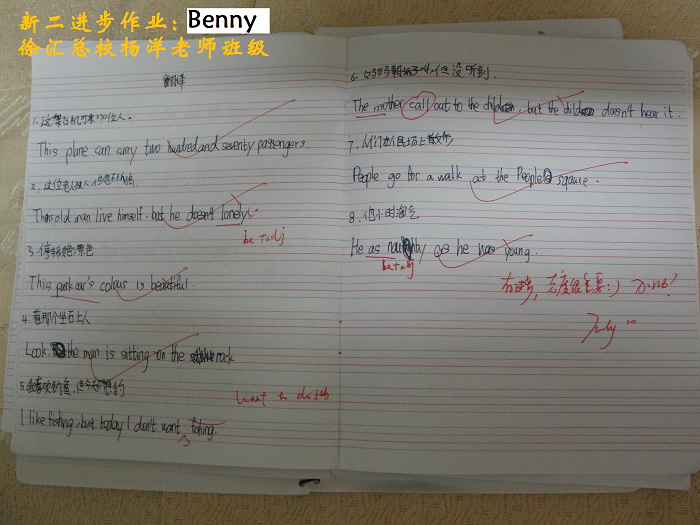 新二进步作业：Benny
徐汇总校杨洋老师班级
翻译
1.这架飞机可乘270位人。
This plane can carry two hundred and seventy passengers.
2.这位老人
The old man live himself. but he doesn't lonely.
be + adj
3.
This park car's colour is beautiful.
4.看那个坐石上人
Look. the man is sitting on the rock
5.我喜欢钓鱼，但今天不想钓
want to do sth
I like fishing, but today I don't want fishing.
6.但没听到.
The mother call out to the children, but the children doesn't hear it.
7.人们在人民广场上散步
People go for a walk at the People sqaure.
8.他小时淘气
He as naughty as he was young.
be + adj
有进步，态度很重要:)
July